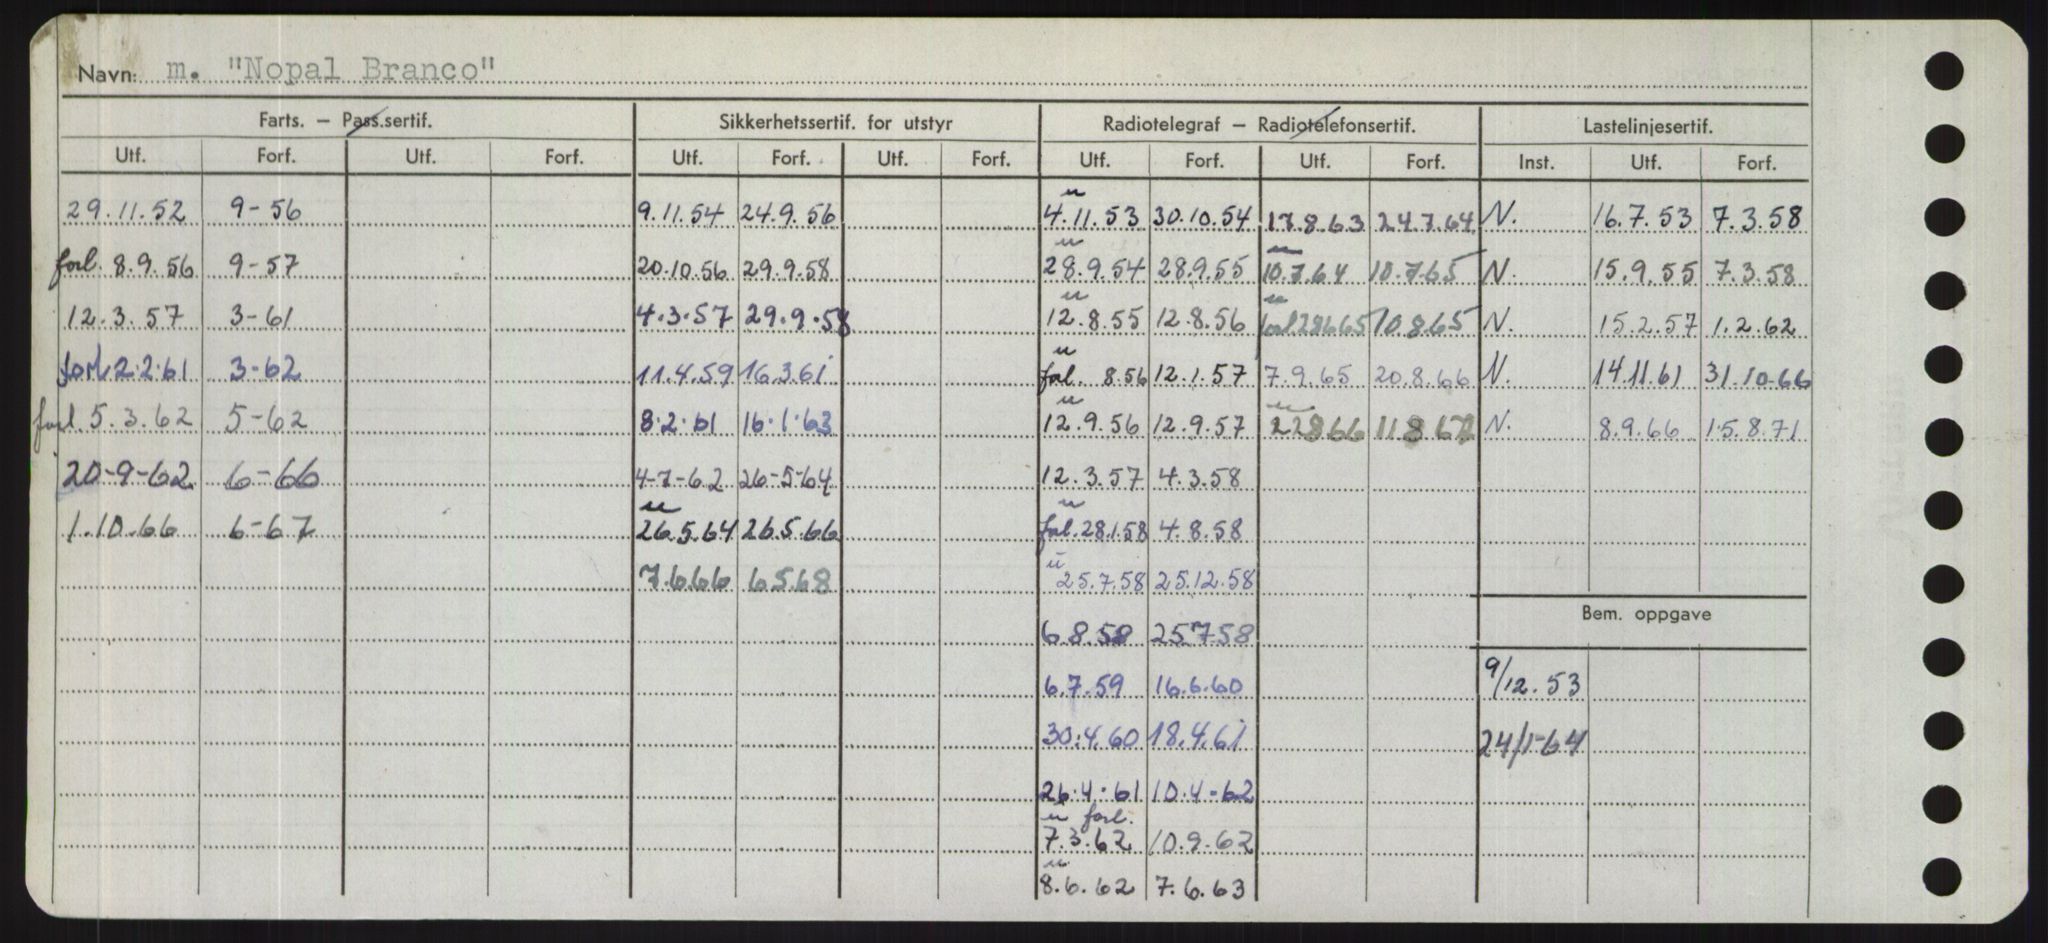 Navn: m. "Nopal Branco"
Farts. — Pass.sertif. Sikkerhetssertif. for utstyr Radiotelegraf — Radiotelefonsertif. Lastelinjesertif.
Utf. Forf. Utf. Forf. Utf. Forf. Utf. Forf. Utf. Forf. Utf. Forf. Inst. Utf. Forf.
29.11.52 9-56 9.11.54 24.9.56 u 4.11.53 30.10.54 17.8.63 24.7.64 N. 16.7.53 7.3.58
forl. 8.9.56 9-57 20.10.56 29.9.58 u 28.9.54 28.9.55 u 10.7.64 10.7.65 N. 15.9.55 7.3.58
12.3.57 3-61 4.3.57 29.9.58 u 12.8.55 12.8.56 u forl 28665 10865 N. 15.2.57 1.2.62
forl. 2.2.61 3-62 11.4.59 16.3.61 u forl. 8.56 12.1.57 7.9.65 20.8.66 N. 14.11.61 31.10.66
forl. 5.3.62 5-62 8.2.61 16.1.63 u 12.9.56 12.9.57 u 22866 11867 N. 8.9.66 15.8.71
20-9-62 6-66 4-7-62 26-5-64 12.3.57 4.3.58
1.10.66 6-67 u 26.5.64 26.5.66 u forl. 28.1.58 4.8.58
7.6.66 6568 u 25.7.58 25.12.58
6.8.58 25758
Bem. oppgave
6.7.59 16.6.60 9/12.53
30.4.60 18.4.61 24/1-64
26.4.61 10.4-62
u forl.
7.3.62 10.9.62
u 8.6.62 7.6.63